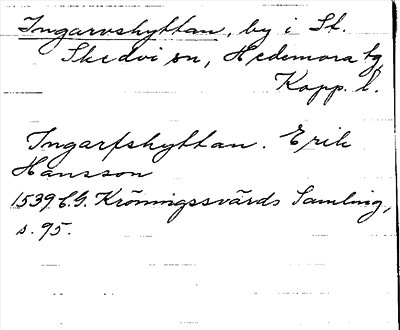 Ingarvshyttan, by i St.
Skedvi sn, Hedemora tg,
Kopp. l.
Ingarfshyttan. Erik
Hansson
1539. C.G. Kröningssvärds Samling,
s. 95.